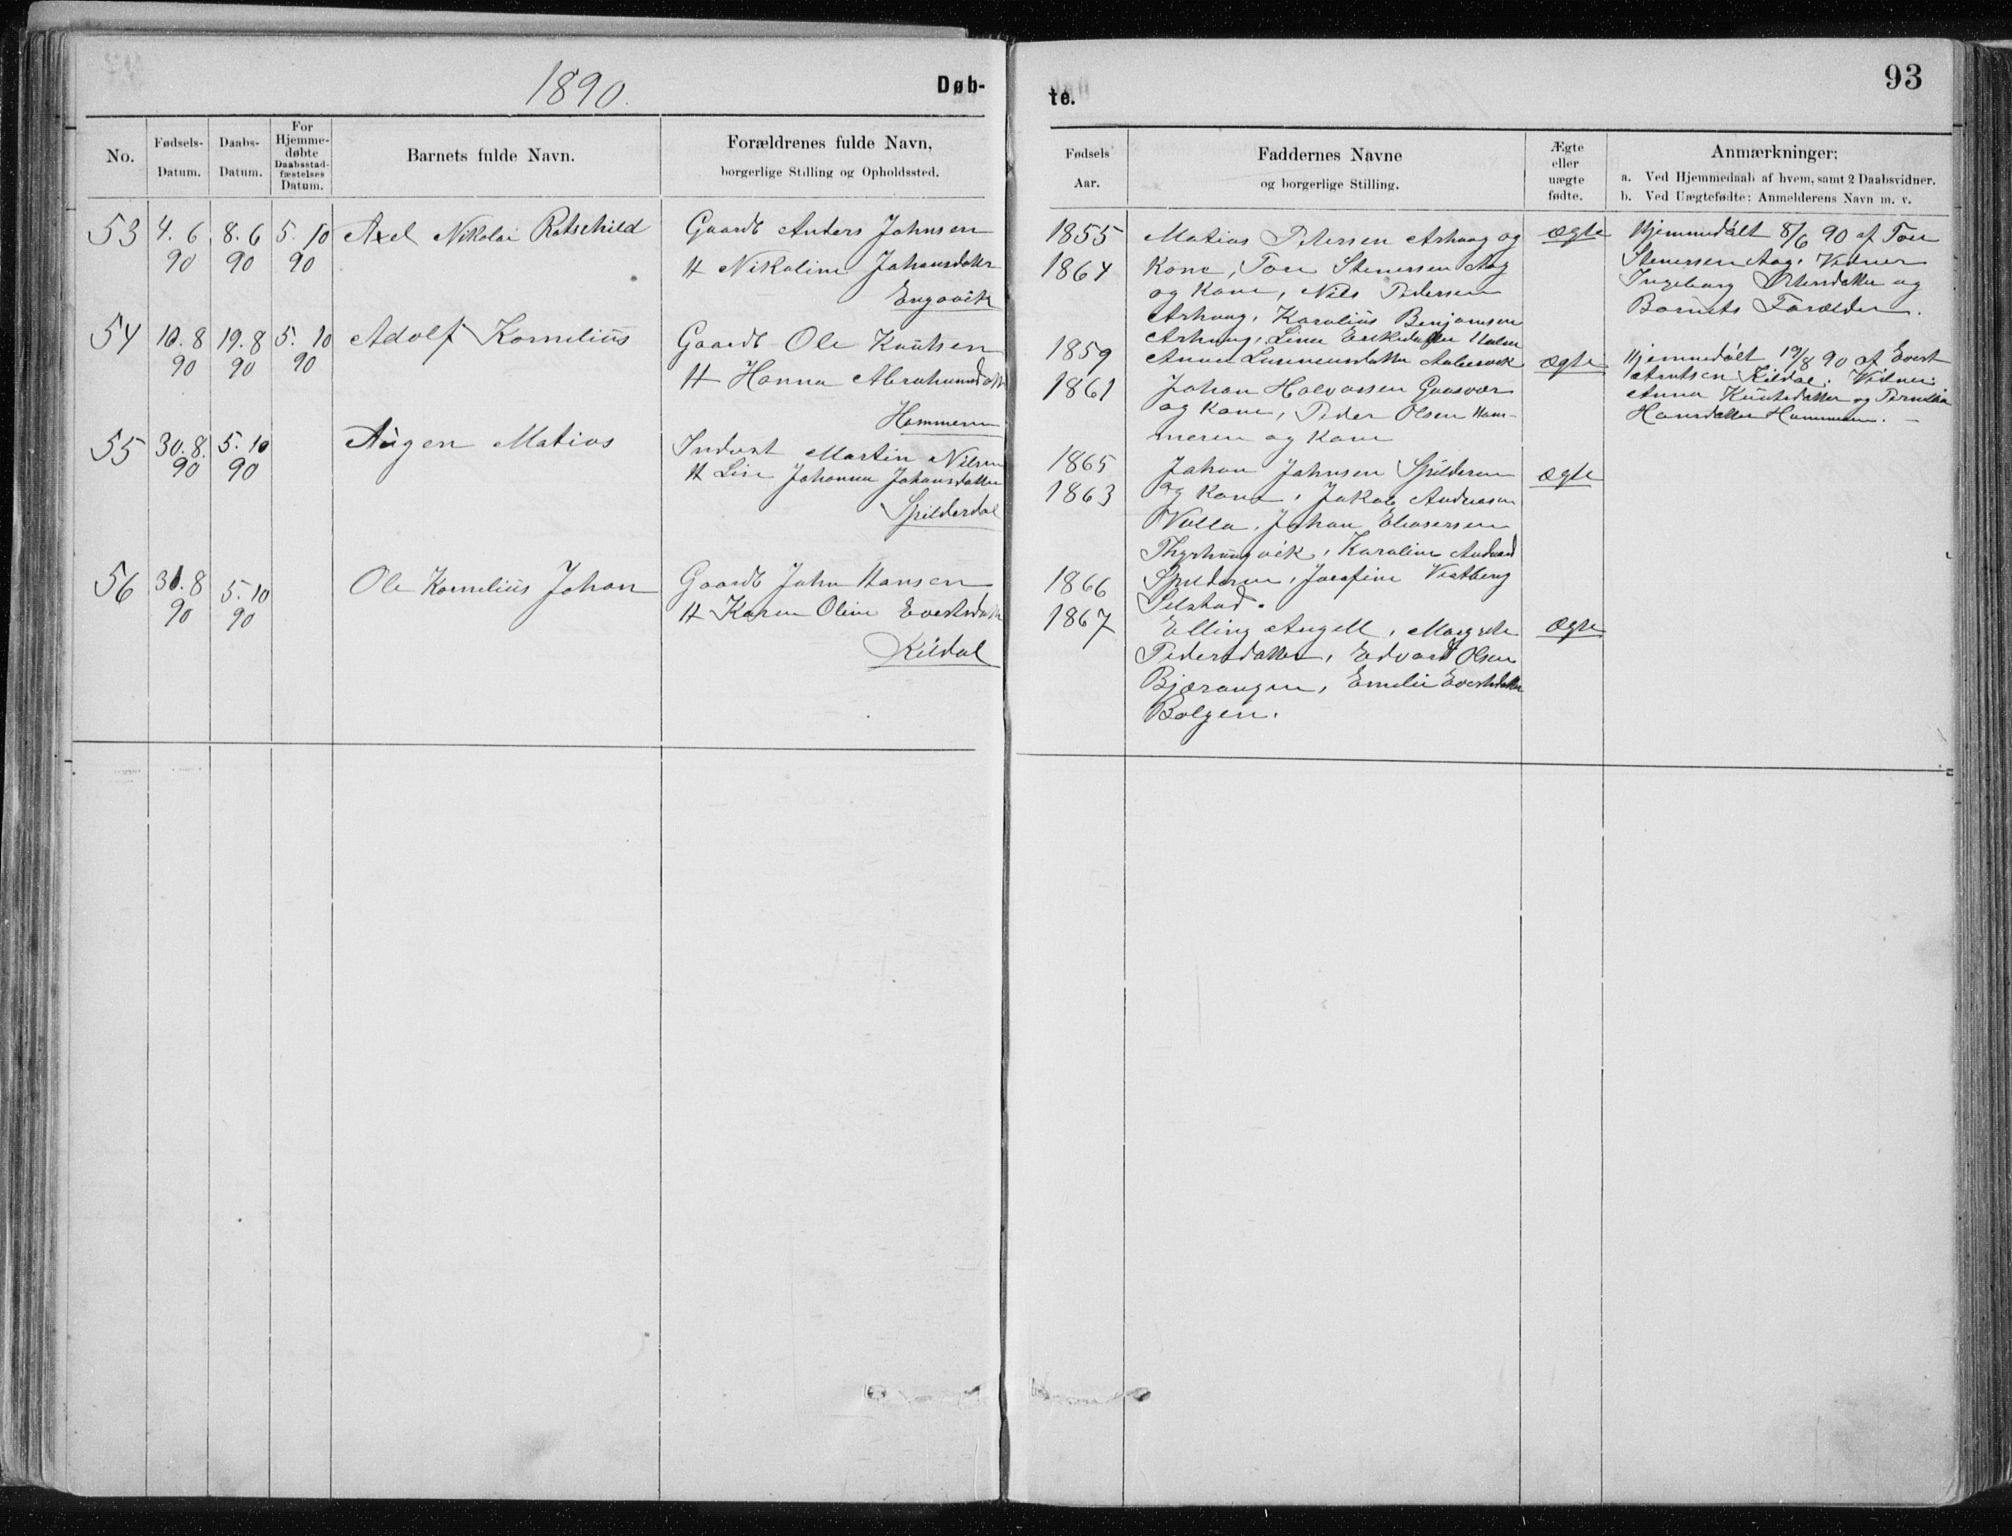 1890.
Døb-
No.
Fødsels-
Datum.
Daabs-
Datum.
For
Hjemme-
døbte
Daabsstad-
fæstelses
Datum.
Barnets fulde Navn.
Forældrenes fulde Navn,
borgerlige Stilling og Opholdssted.
53 4. 6 8. 6 5. 10 Axel Nikolai Rotschild Gaardb Anders Johnsen
90 90 90 H Nikoline Johansdatter
Engavik
54 10. 8 19. 8 5. 10 Adolf Kornelius Gaardb Ole Knutsen
90 90 90 H Hanna Abrahamsdatt
Hammeren
55 30. 8. 5. 10 Augen Matias Inderst Martin Nilsen
90 90 H Lise Johanna Johansdatter
Spilderdal
56 31. 8 5. 10 Ole Kornelius Johan Gaardb John Hansen
90 90 H Karen Oline Evertsdatt
Kildal
te.
93
Fødsels
Aar.
Faddernes Navne
og borgerlige Stilling.
Ægte
eller
uægte
fødte.
Anmærkninger;
a. Ved Hjemmedaab af hvem, samt 2 Daabsvidner.
b. Ved Uægtefødte: Anmelderens Navn m. v.
1855 Matias Petersen Arhaug og ægte Hjemmedøbt 8/6 90 af Tore
1864 Kone, Tore Stenersen Aag Stenersen Aag. Vidner
og Kone, Nils Pedersen Ingeborg og
Arhaug, Karolius Benjamsen Barnets Forælder.
Arhaug, Lina Eriksdatter
1859 Anna Aalesvik ægte Hjemmedøbt 19/8 90 af Evert
1861 Johan Halvorsen Gaasvær Arntsen Kildal. Vidner:
og Kone, Peder Olsen Ham- Anna Knutsdatter og Pernilla
meren og Kone Hansdatter Hammeren. -
1865 Johan Johnsen Spilderen ægte
1863 og Kone, Jakob Andreasen
Valla, Johan Eliasersen
Thyrhaugvik, Karoline
1866 Spilderen, Josefine Vestberg
Selstad.
1867 Elling Angell, Margrete ægte
Pedersdatter, Edvard Olsen
Bjærangen, Emelie Evertsdatter
Bolgen.